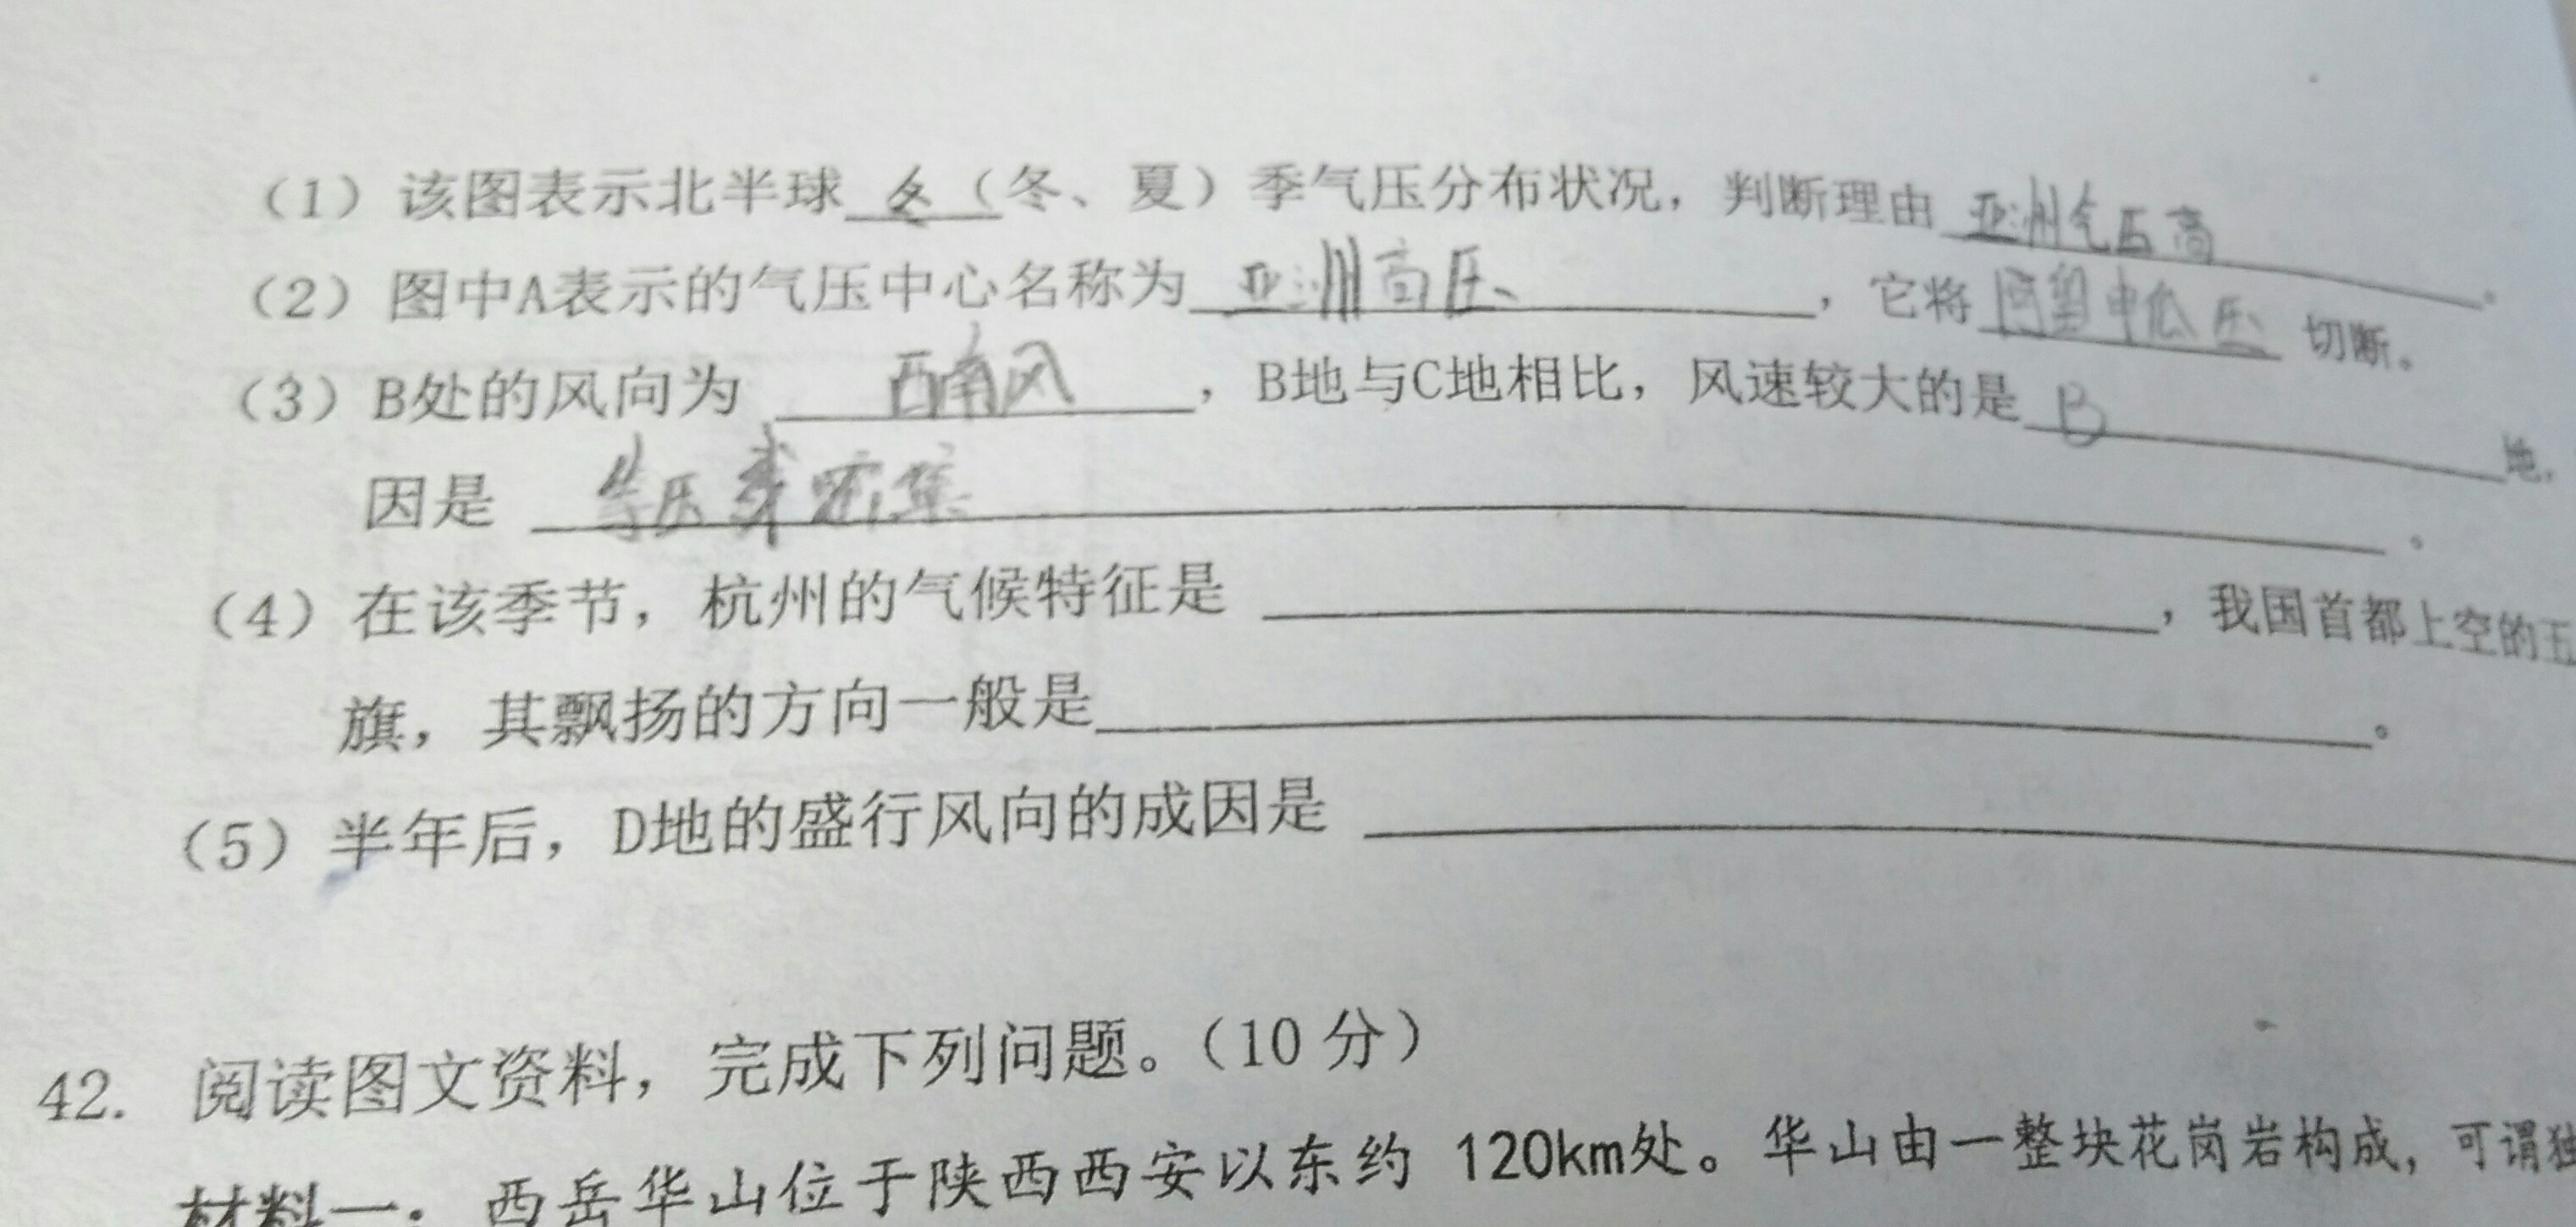 （1）该图表示北半球 冬 （冬、夏）季气压分布状况，判断理由 亚洲气压高 。
（2）图中A表示的气压中心名称为 亚洲高压 ，它将 阿留申低压 切断。
（3）B处的风向为 西南风 ，B地与C地相比，风速较大的是 B 地，
因是 等压线密集 。
（4）在该季节，杭州的气候特征是 ，我国首都上空的五
旗，其飘扬的方向一般是 。
（5）半年后，D地的盛行风向的成因是
42. 阅读图文资料，完成下列问题。（10 分）
材料一：西岳华山位于陕西西安以东约 120km处。华山由一整块花岗岩构成，可谓独